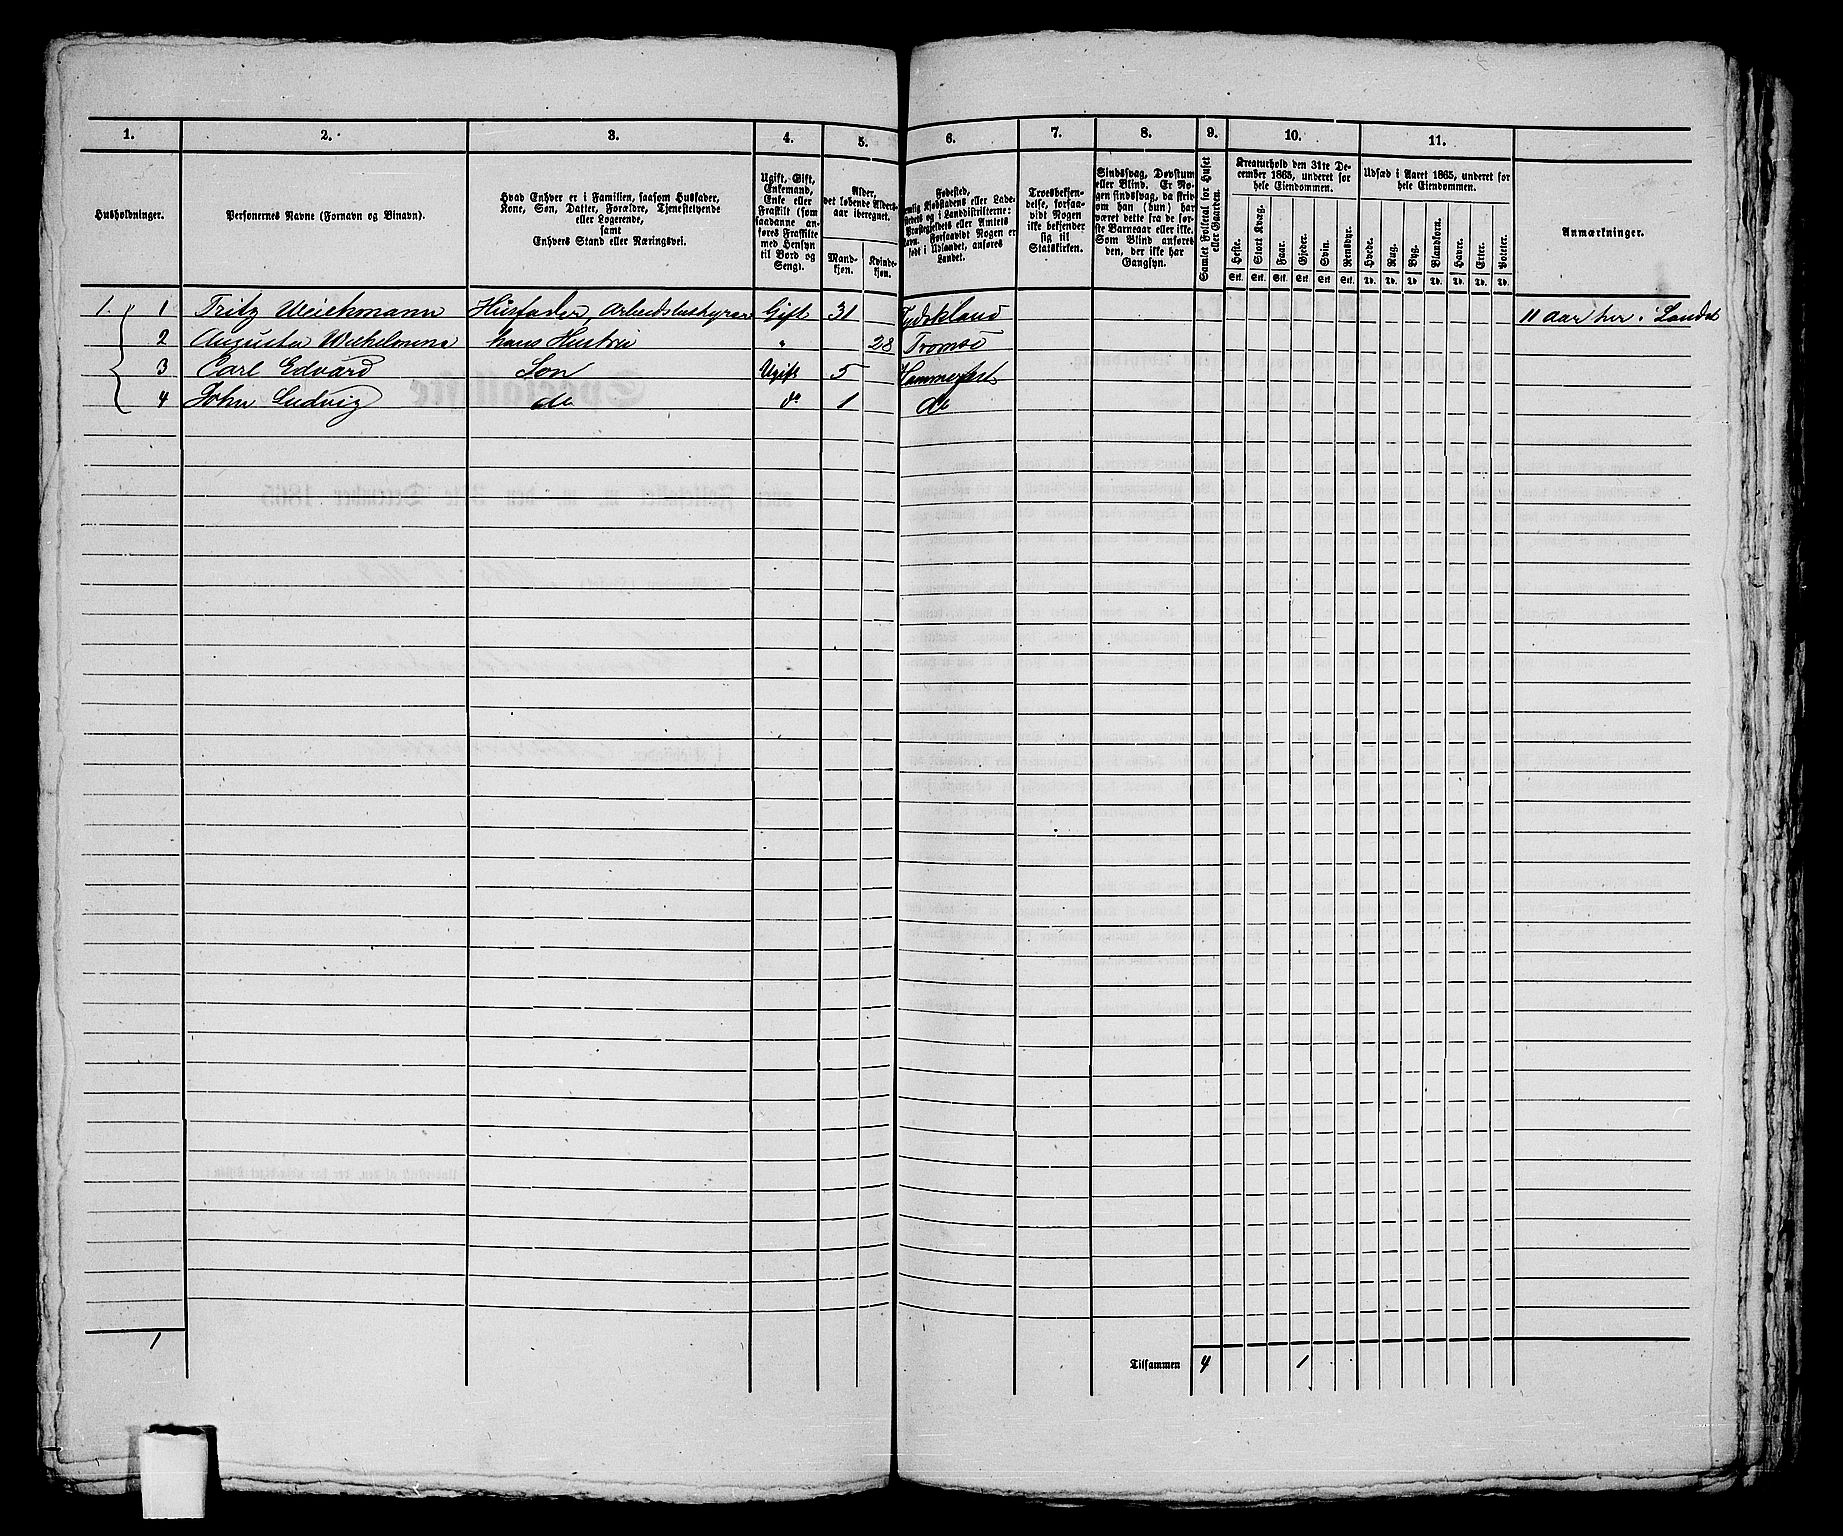 1. 2. 3. 4. 5. 6. 7. 8. 9. 10. 11.
Husholdninger.
Personernes Navne (Fornavn og Binavn).
Hvad Enhver er i Familien, saasom Husfader,
Kone, Søn, Datter, Forældre, Tjenestetyende
eller Logerende,
samt
Enhvers Stand eller Næringsvei.
Ugift, Gift,
Enkemand,
Enke eller
Fraskilt (som
saadanne an-
føres Fraskilte
med Hensyn
til Bord og
Seng).
Alder,
det løbende Alders-
aar iberegnet.
Mand-
kjøn.
Kvinde-
kjøn.
Fødested,
Kjøbstadens eller Lade-
stedets og i Landdistrikterne:
Præstegjeldets eller Amtets
Navn. Forsaavidt Nogen er
født i Udlandet, anføres
Landet.
Troesbekjen-
delse, forsaa-
vidt Nogen
ikke bekjender
sig til
Statskirken.
Sindssvag, Døvstum
eller Blind. Er No-
gen sindssvag, da skriv
om han (hun) har
været dette fra de før-
ste Barneaar eller ikke.
Som Blind anføres
den, der ikke har
Gangsyn.
Samlet Folketal for Huset
eller Gaarden.
Kreaturhold den 31te De-
cember 1865, underet for
hele Eiendommen.
Heste. Stort Kvæg. Faar. Gjeder. Svin. Rensdyr.
Stk. Stk. Stk. Stk. Stk. Stk.
Udsæd i Aaret 1865, underet for
hele Eiendommen.
Hvede. Rug. Byg. Blandkorn. Havre. Erter. Poteter.
Td. Td. Td. Td. Td. Td. Td.
Anmærkninger.
1. 1 Fritz Weickmann Husfader, Arbeidsbestyrer Gift 31 Tydskland 11 Aar her i Landet
2 Augusta Wilhelmina hans Hustru " 28 Tromsø
3 Carl Edvard Søn Ugift 5 Hammerfest
4 John Ludvig do do 1 do
1
Tilsammen 4 1